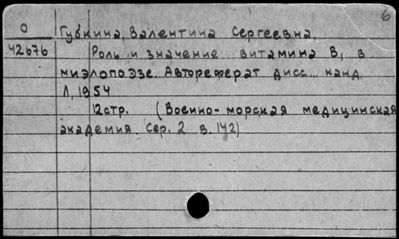 6
О Губкина, Валентина Сергеевна,
42676 Роль и значение витамина В, в
миэлопоэзе. Автореферат дисс... канд.
Л, 1954
12стр. (Военно-морская медицинская
академия Сер. 2 в. 142)